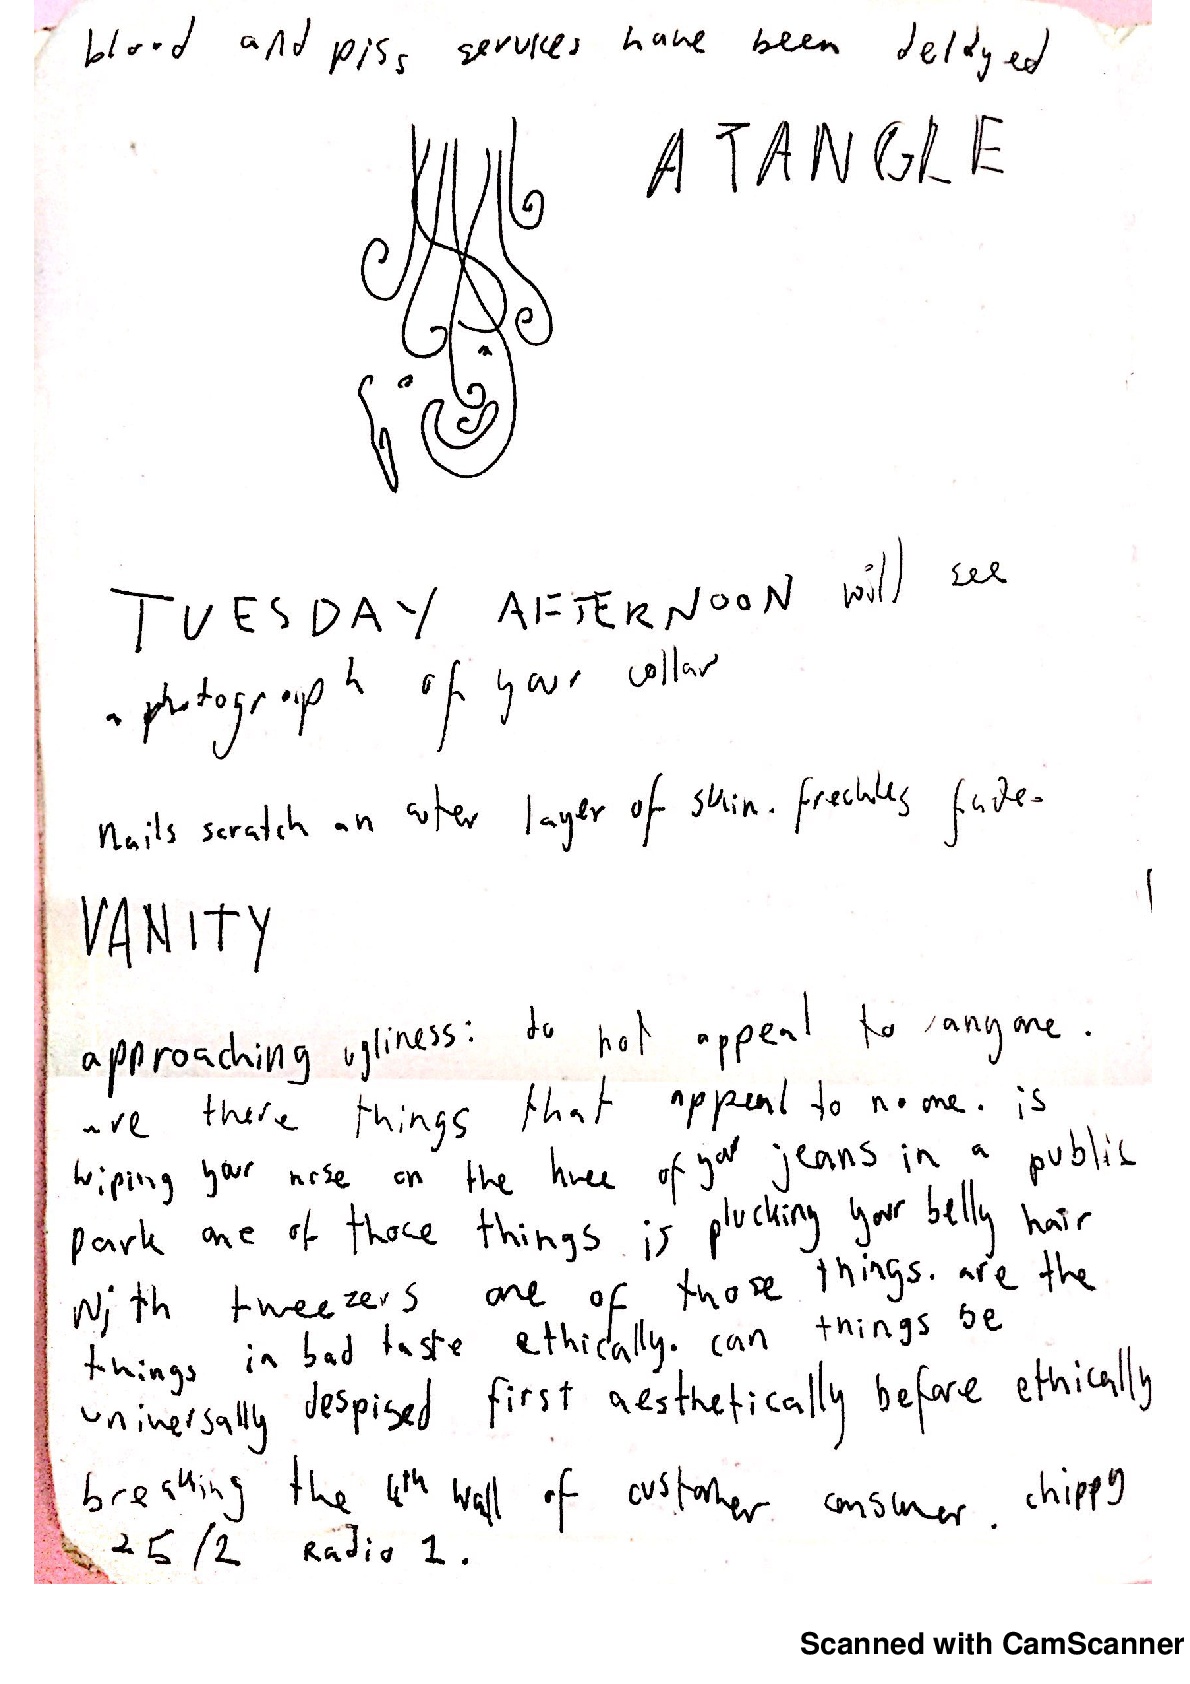 blood and piss services have been delayed
A TANGLE
TUESDAY AFTERNOON will see
a photograph of your collar
Nails scratch an outer layer of skin. freckles fade.
VANITY
approaching ugliness: do not appeal to anyone.
are there things that appeal to no one. is
wiping your nose on the knee of your jeans in a public
park one of those things. is plucking your belly hair
with tweezers one of those things. are the
things in bad taste ethically. can things be
universally despised first aesthetically before ethically
breaking the 4th wall of customer consumer. chippy
25/2 Radio 1.
Scanned with CamScanner